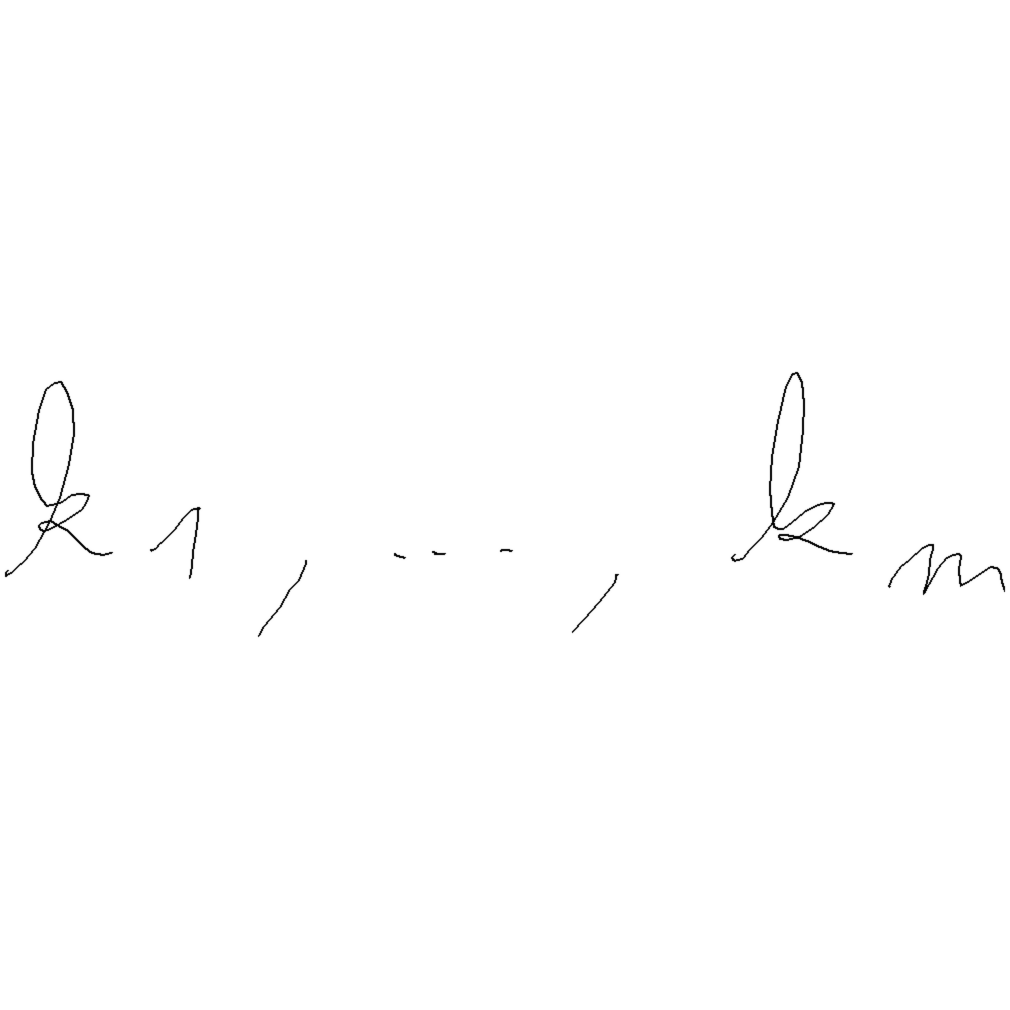 k_1, ..., k_m